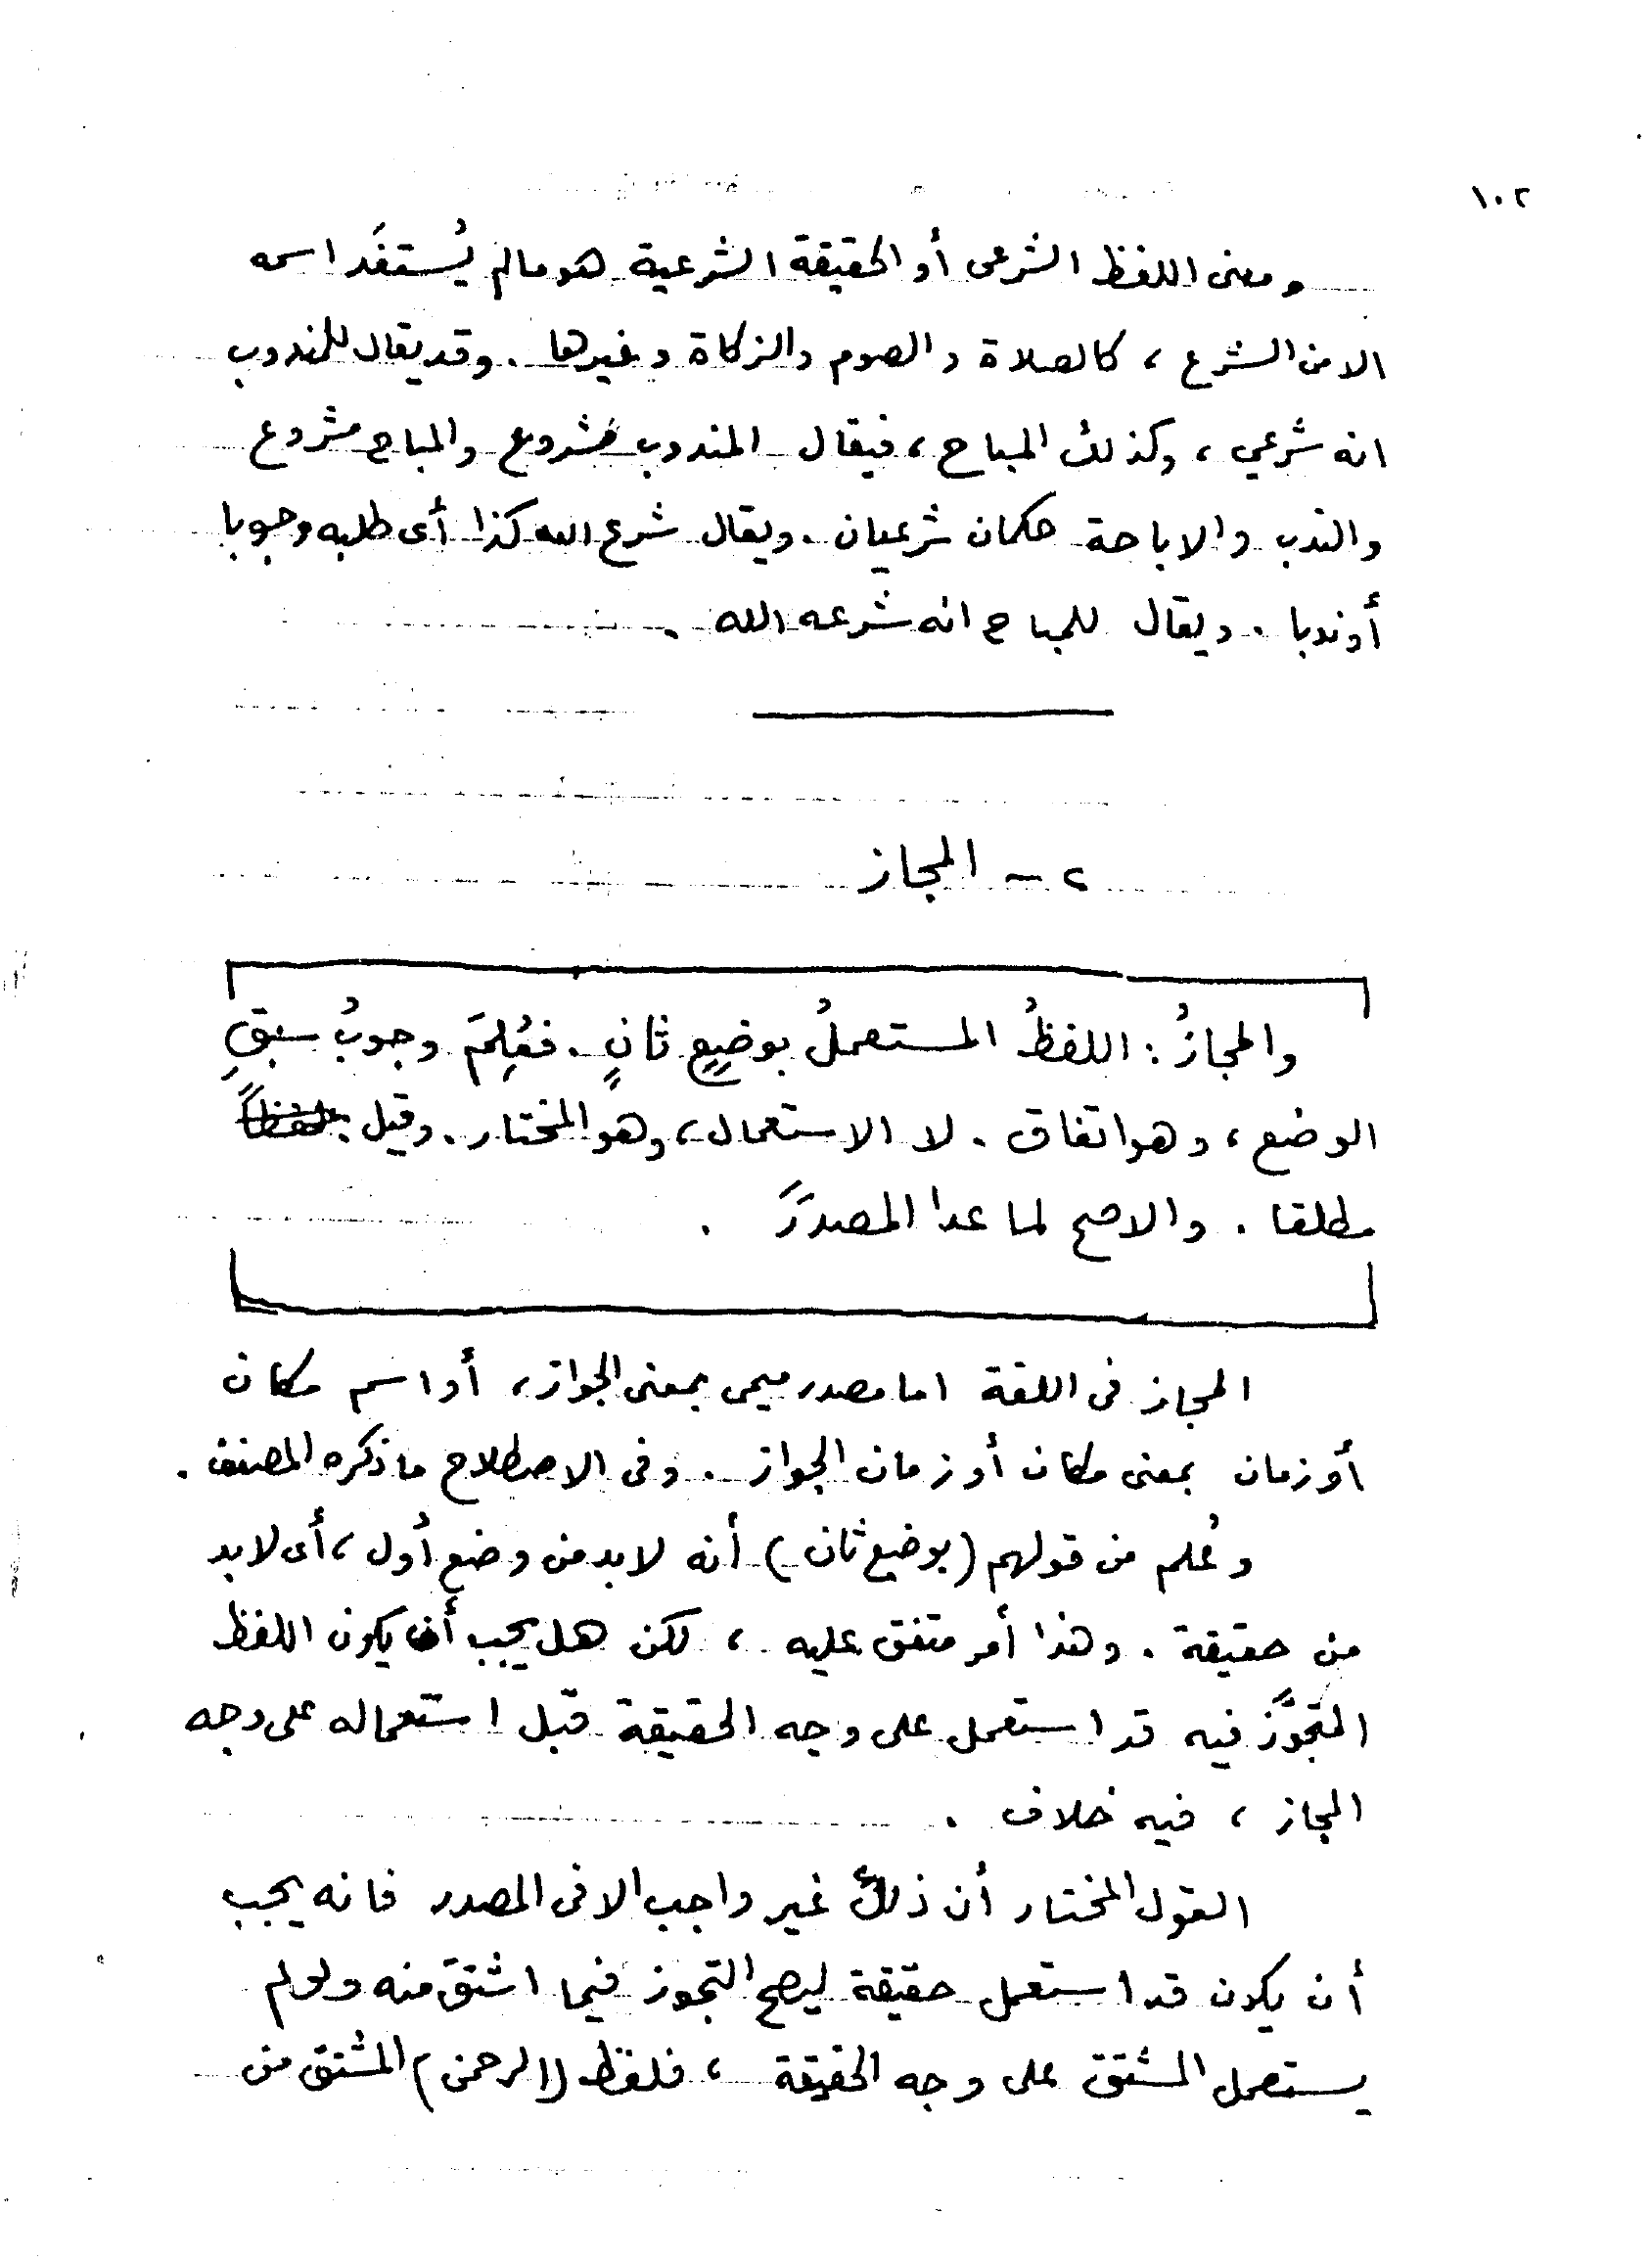 ١٠٢
ومعنى اللفظ الشرعى أو الحقيقة الشرعية هو مالم يُستفَد اسمه
الا من الشرع ، كالصلاة والصوم والزكاة وغيرها . وقد يقال للمندوب
انه شرعي ، وكذلك المباح ، فيقال المندوب مشروع والمباح مشروع
والندب والاباحة حكمان شرعيان . ويقال شرع الله كذا أى طلبه وجوبا
أو ندبا . ويقال للمباح انه شرعه الله .
٢ - المجاز
والمجازُ : اللفظُ المستعملُ بوضعٍ ثانٍ . فعُلِمَ وجوبُ سبقِ
الوضع ، وهو اتفاق . لا الاستعمال ، وهو المختار . وقيل :
مطلقا . والاصح لما عدا المصدرَ .
المجاز فى اللغة اما مصدر ميمى بمعنى الجواز ، أو اسم مكان
أو زمان بمعنى مكان أو زمان الجواز . وفى الاصطلاح ما ذكره المصنف .
وعُلم من قولهم (بوضع ثان) أنه لابد من وضع أول ، أى لابد
من حقيقة . وهذا أمر متفق عليه ، لكن هل يجب أن يكون اللفظ
المتجوَّز فيه قد استعمل على وجه الحقيقة قبل استعماله على وجه
المجاز ، فيه خلاف .
القول المختار أن ذلك غير واجب الا فى المصدر فانه يجب
أن يكون قد استعمل حقيقة ليصح التجوز فيما اشتق منه ولو لم
يستعمل المشتق على وجه الحقيقة ، فلفظ (الرحمن) المشتق من